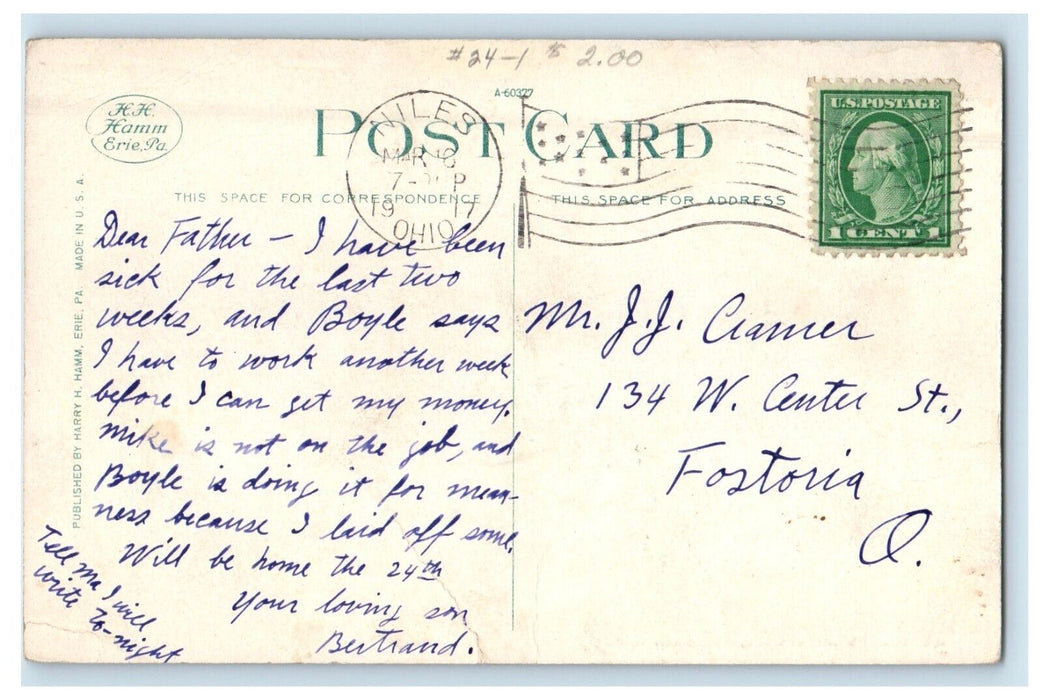 #24-1 $ 2.00
A-60377
H.H.
Hamm
Erie, Pa.
POST CARD
NILES
MAR 16
7- P
19 17
OHIO
U.S. POSTAGE
1 CENT 1
THIS SPACE FOR CORRESPONDENCE
THIS SPACE FOR ADDRESS
PUBLISHED BY HARRY H. HAMM, ERIE, PA. MADE IN U.S.A.
Dear Father – I have been
sick for the last two
weeks, and Boyle says
I have to work another week
before I can get my money.
Mike is not on the job, and
Boyle is doing it for mean-
ness because I laid off some.
Will be home the 24th
Your loving son
Bertrand.
Tell Ma I will
write to-night
Mr. J.J. Cramer
134 W. Center St.,
Fostoria
O.